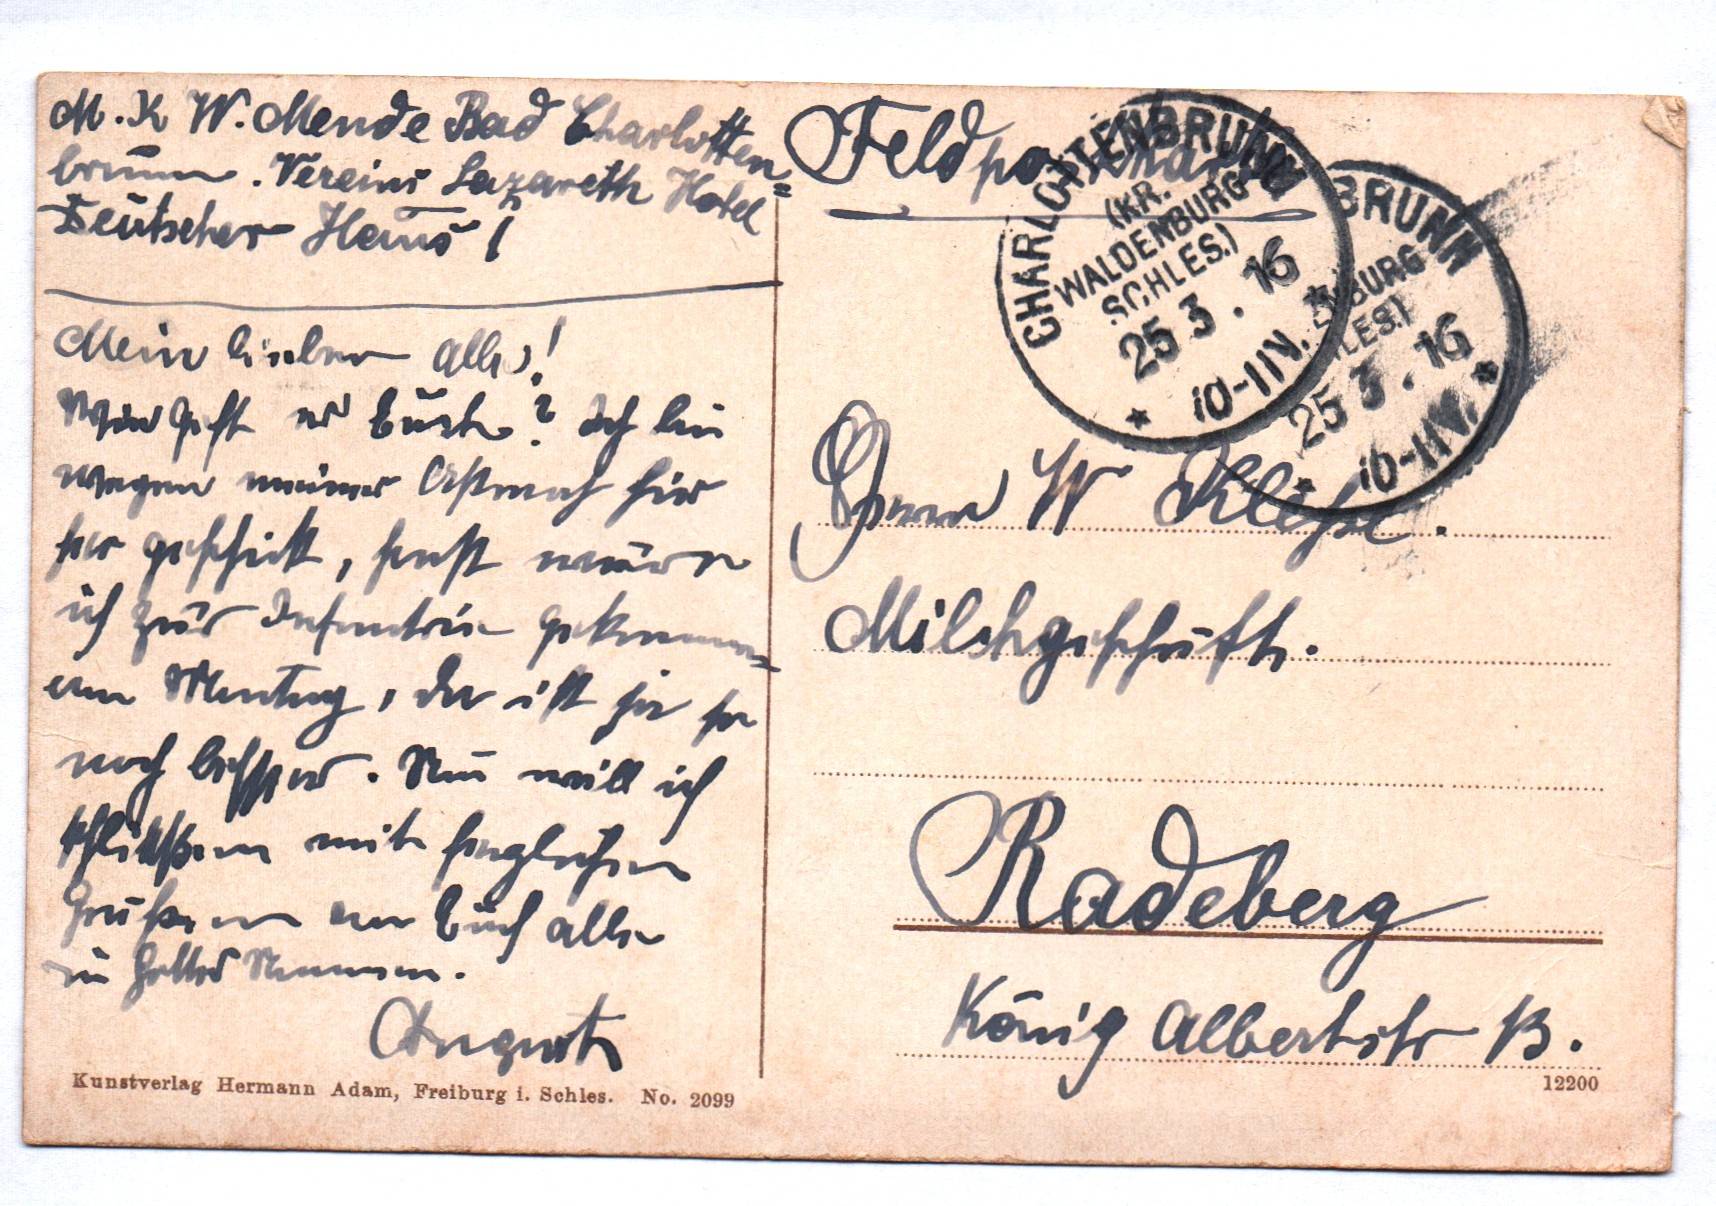 M. K W. Mende Bad Charlotten=
brunn. Vereins Lazareth Hotel
Deutscher Haus!
Meine lieben alle!
Wie geht es Euch? Ich bin
wegen meiner Asthmah hier
her geschickt, sonst wäre
ich zur Infantrie gekommen=
am Montag, da ist ja so
noch besser. Nun will ich
schließen mit herzlichen
Grüßen an Euch alle
in Gottes Namen.
August
Kunstverlag Hermann Adam, Freiburg i. Schles. No. 2099
Feldpostkarte
CHARLOTTENBRUNN
(KR.
WALDENBURG
SCHLES.)
25 3. 16
* 10-11V. *
BRUNN
BURG
LES.)
25 3. 16
* 10-11V. *
Herrn W
Milchgeschäft.
Radeberg
König Albertstr B.
12200